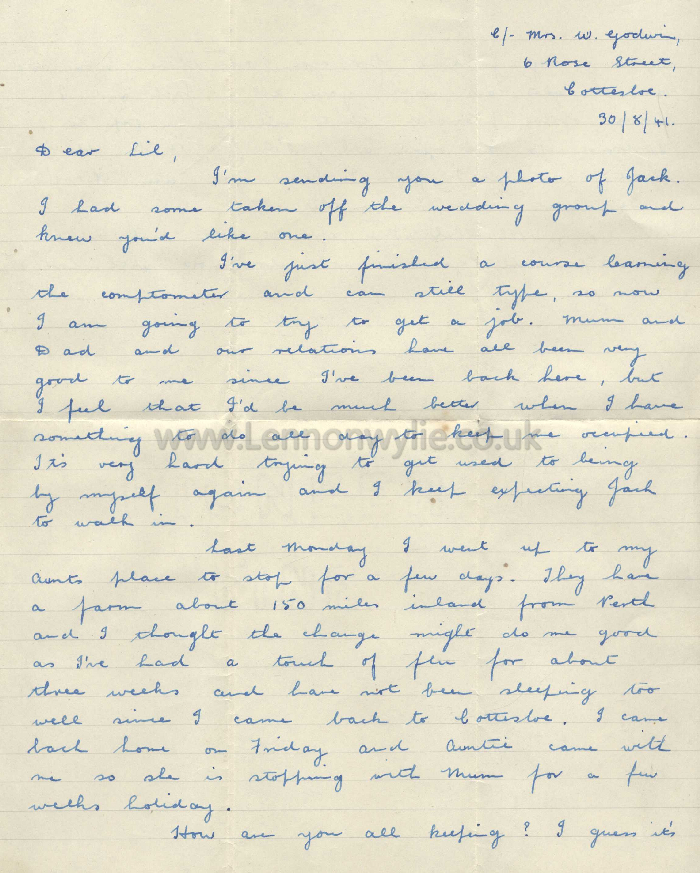 C/- Mrs. W. Godwin,
6 Rose Street,
Cottesloe.
30/8/41.
Dear Lil,
I'm sending you a photo of Jack.
I had some taken off the wedding group and
knew you'd like one.
I've just finished a course learning
the comptometer and can still type, so now
I am going to try to get a job. Mum and
Dad and our relations have all been very
good to me since I've been back here, but
I feel that I'd be much better when I have
something to do all day to keep me occupied.
www.Lennonwylie.co.uk
It's very hard trying to get used to being
by myself again and I keep expecting Jack
to walk in.
Last Monday I went up to my
Aunts place to stop for a few days. They have
a farm about 150 miles inland from Perth
and I thought the change might do me good
as I've had a touch of flu for about
three weeks and have not been sleeping too
well since I came back to Cottesloe. I came
back home on Friday and Auntie came with
me so she is stopping with Mum for a few
weeks holiday.
How are you all keeping? I guess it's